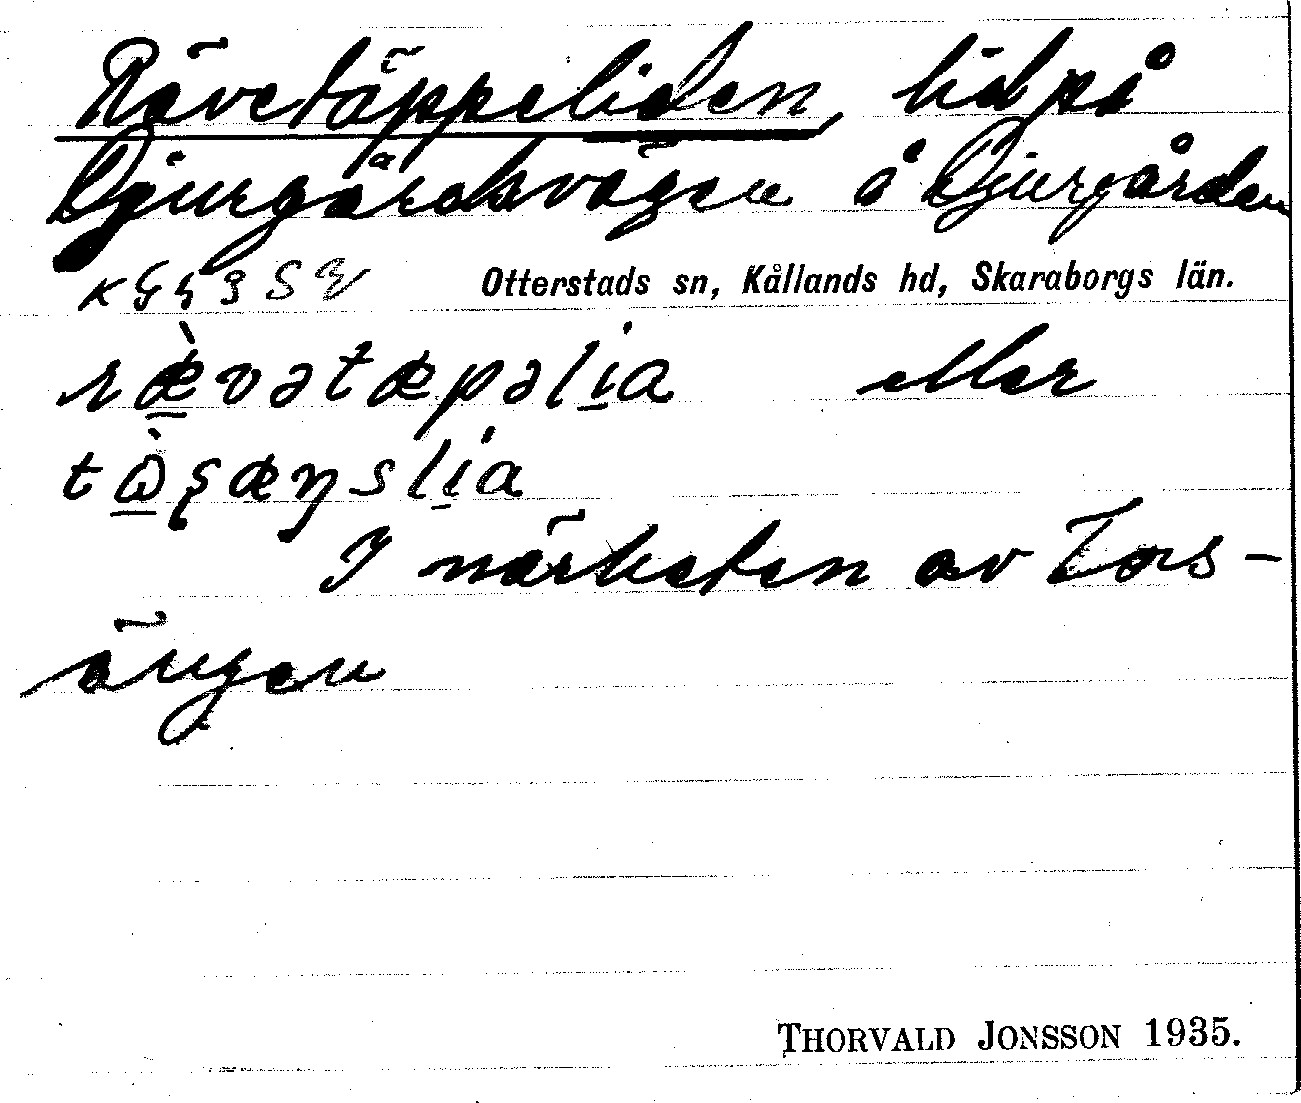 Rävetäppeliden, lid på
Djurgårdsvägen å Djurgården
Otterstads sn, Kållands hd, Skaraborgs län.
ræ̀vətæpəlia eller
tɷ̀ʂæŋslia
I närheten av Tors-
ängen
THORVALD JONSSON 1935.